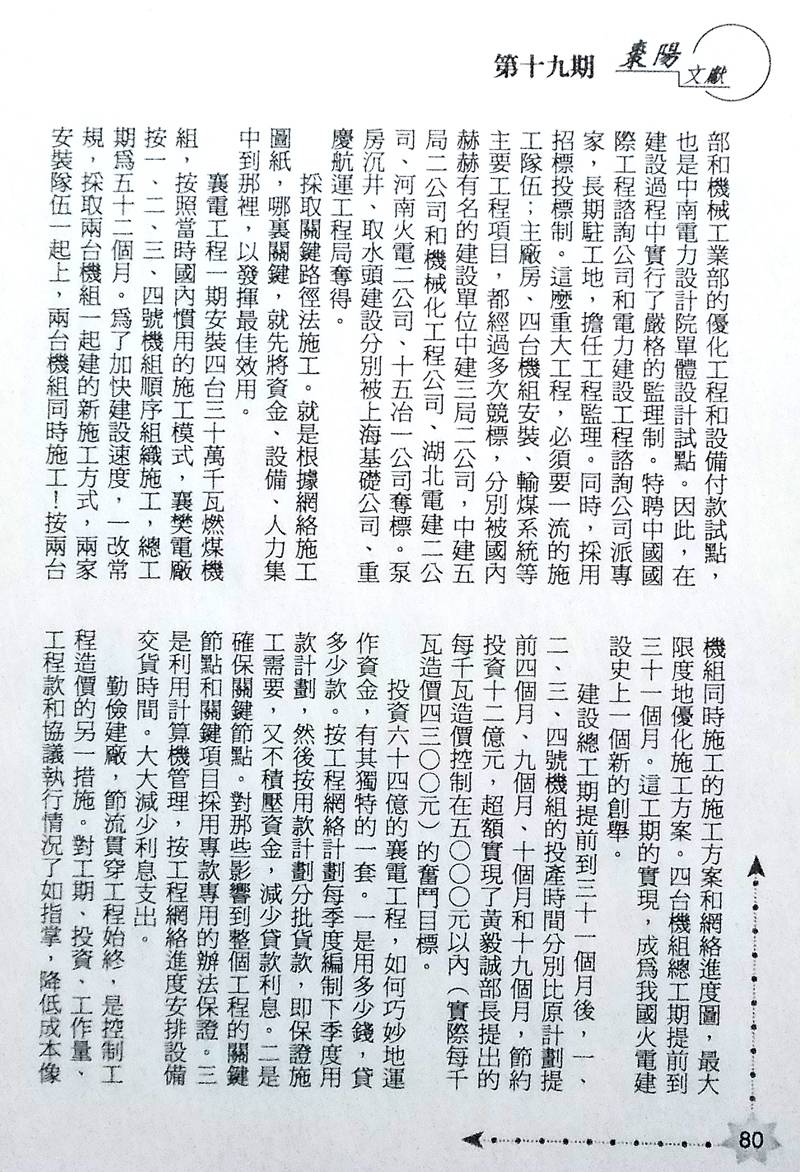 第十九期
棗陽
文獻
部和機械工業部的優化工程和設備付款試點，
也是中南電力設計院單體設計試點。因此，在
建設過程中實行了嚴格的監理制。特聘中國國
際工程諮詢公司和電力建設工程諮詢公司派專
家，長期駐工地，擔任工程監理。同時，採用
招標投標制。這麼重大工程，必須要一流的施
工隊伍；主廠房、四台機組安裝、輸煤系統等
主要工程項目，都經過多次競標，分別被國內
赫赫有名的建設單位中建三局二公司，中建五
局二公司和機械化工程公司、湖北電建二公
司、河南火電二公司、十五冶一公司奪標。泵
房沉井、取水頭建設分別被上海基礎公司、重
慶航運工程局奪得。
採取關鍵路徑法施工。就是根據網絡施工
圖紙，哪裏關鍵，就先將資金、設備、人力集
中到那裡，以發揮最佳效用。
襄電工程一期安裝四台三十萬千瓦燃煤機
組，按照當時國內慣用的施工模式，襄樊電廠
按一、二、三、四號機組順序組織施工，總工
期爲五十二個月。爲了加快建設速度，一改常
規，採取兩台機組一起建的新施工方式，兩家
安裝隊伍一起上，兩台機組同時施工！按兩台
機組同時施工的施工方案和網絡進度圖，最大
限度地優化施工方案。四台機組總工期提前到
三十一個月。這工期的實現，成爲我國火電建
設史上一個新的創舉。
建設總工期提前到三十一個月後，一、
二、三、四號機組的投產時間分別比原計劃提
前四個月、九個月、十個月和十九個月，節約
投資十二億元，超額實現了黃毅誠部長提出的
每千瓦造價控制在五〇〇〇元以內（實際每千
瓦造價四三〇〇元）的奮鬥目標。
投資六十四億的襄電工程，如何巧妙地運
作資金，有其獨特的一套。一是用多少錢，貸
多少款。按工程網絡計劃每季度編制下季度用
款計劃，然後按用款計劃分批貨款，即保證施
工需要，又不積壓資金，減少貸款利息。二是
確保關鍵節點。對那些影響到整個工程的關鍵
節點和關鍵項目採用專款專用的辦法保證。三
是利用計算機管理，按工程網絡進度安排設備
交貨時間。大大減少利息支出。
勤儉建廠，節流貫穿工程始終，是控制工
程造價的另一措施。對工期、投資、工作量、
工程款和協議執行情況了如指掌，降低成本像
80